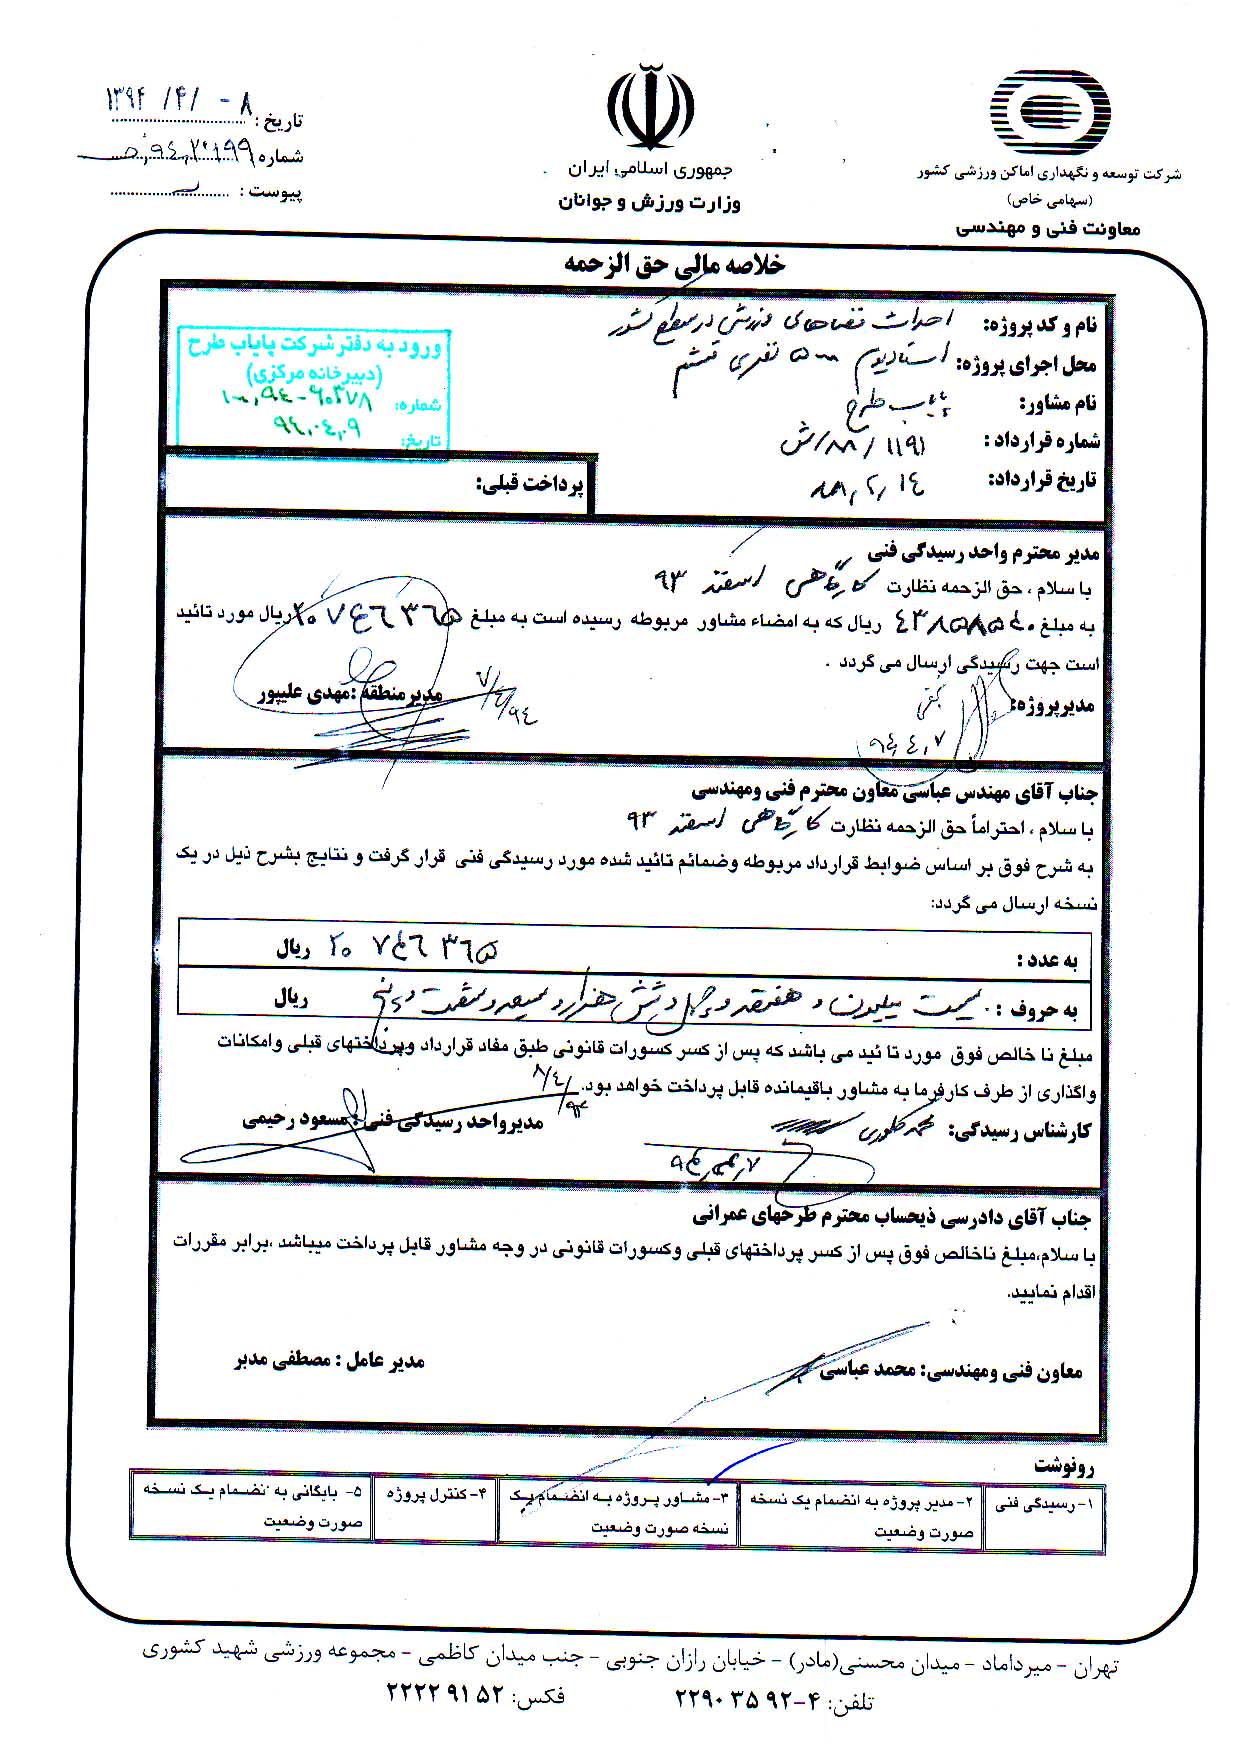 شرکت توسعه و نگهداری اماکن ورزشی کشور
(سهامی خاص)
معاونت فنی و مهندسی
جمهوری اسلامی ایران
وزارت ورزش و جوانان
تاریخ: ۱۳۹۴/۴/۰۸
شماره
پیوست:
خلاصه مالی حق الزحمه
نام و کد پروژه: احداث فضاهای ورزشی در سطح کشور
محل اجرای پروژه: استادیوم ۵۰۰۰ نفری قشم
نام مشاور: پایاب طرح
شماره قرارداد: ۱۱۹۱/۸۸/ش
تاریخ قرارداد: ۸۸٫۲٫۱۴
ورود به دفتر شرکت پایاب طرح
(دبیرخانه مرکزی)
شماره: ۱۰٫۹۴-۶۰۳۷۸
تاریخ: ۹۴٫۰۴٫۰۹
پرداخت قبلی:
مدیر محترم واحد رسیدگی فنی
با سلام ، حق الزحمه نظارت کارگاهی اسفند ۹۳
به مبلغ ریال که به امضاء مشاور مربوطه رسیده است به مبلغ ۲۰۷۴۶۳۶۵ ریال مورد تائید
است جهت رسیدگی ارسال می گردد .
مدیرپروژه: ۹۴٫۴٫۷
مدیر منطقه :مهدی علیپور ۹۴/۴/۷
جناب آقای مهندس عباسی معاون محترم فنی ومهندسی
با سلام ، احتراماً حق الزحمه نظارت کارگاهی اسفند ۹۳
به شرح فوق بر اساس ضوابط قرارداد مربوطه وضمائم تائید شده مورد رسیدگی فنی قرار گرفت و نتایج بشرح ذیل در یک
نسخه ارسال می گردد:
به عدد : ۲۰ ۷۴۶ ۳۶۵ ریال
به حروف : بیست میلیون و هفتصد و چهل و شش هزار و سیصد و شصت و پنج ریال
مبلغ نا خالص فوق مورد تا ئید می باشد که پس از کسر کسورات قانونی طبق مفاد قرارداد وپرداختهای قبلی وامکانات
واگذاری از طرف کارفرما به مشاور باقیمانده قابل پرداخت خواهد بود.
کارشناس رسیدگی: محمد ۹۴٫۴٫۷
مدیرواحد رسیدگی فنی : مسعود رحیمی ۹۴/۴/۸
جناب آقای دادرسی ذیحساب محترم طرحهای عمرانی
با سلام،مبلغ ناخالص فوق پس از کسر پرداختهای قبلی وکسورات قانونی در وجه مشاور قابل پرداخت میباشد ،برابر مقررات
اقدام نمایید.
معاون فنی ومهندسی: محمد عباسی
مدیر عامل : مصطفی مدبر
رونوشت
۱-رسیدگی فنی
۲-مدیر پروژه به انضمام یک نسخه
صورت وضعیت
۳-مشاور پروژه به انضمام یک
نسخه صورت وضعیت
۴-کنترل پروژه
۵- بایگانی به انضمام یک نسخه
صورت وضعیت
تهران - میرداماد - میدان محسنی(مادر) - خیابان رازان جنوبی - جنب میدان کاظمی - مجموعه ورزشی شهید کشوری
تلفن: ۴-۲۲۹۰۳۵۹۲ فکس: ۲۲۲۲۹۱۵۲